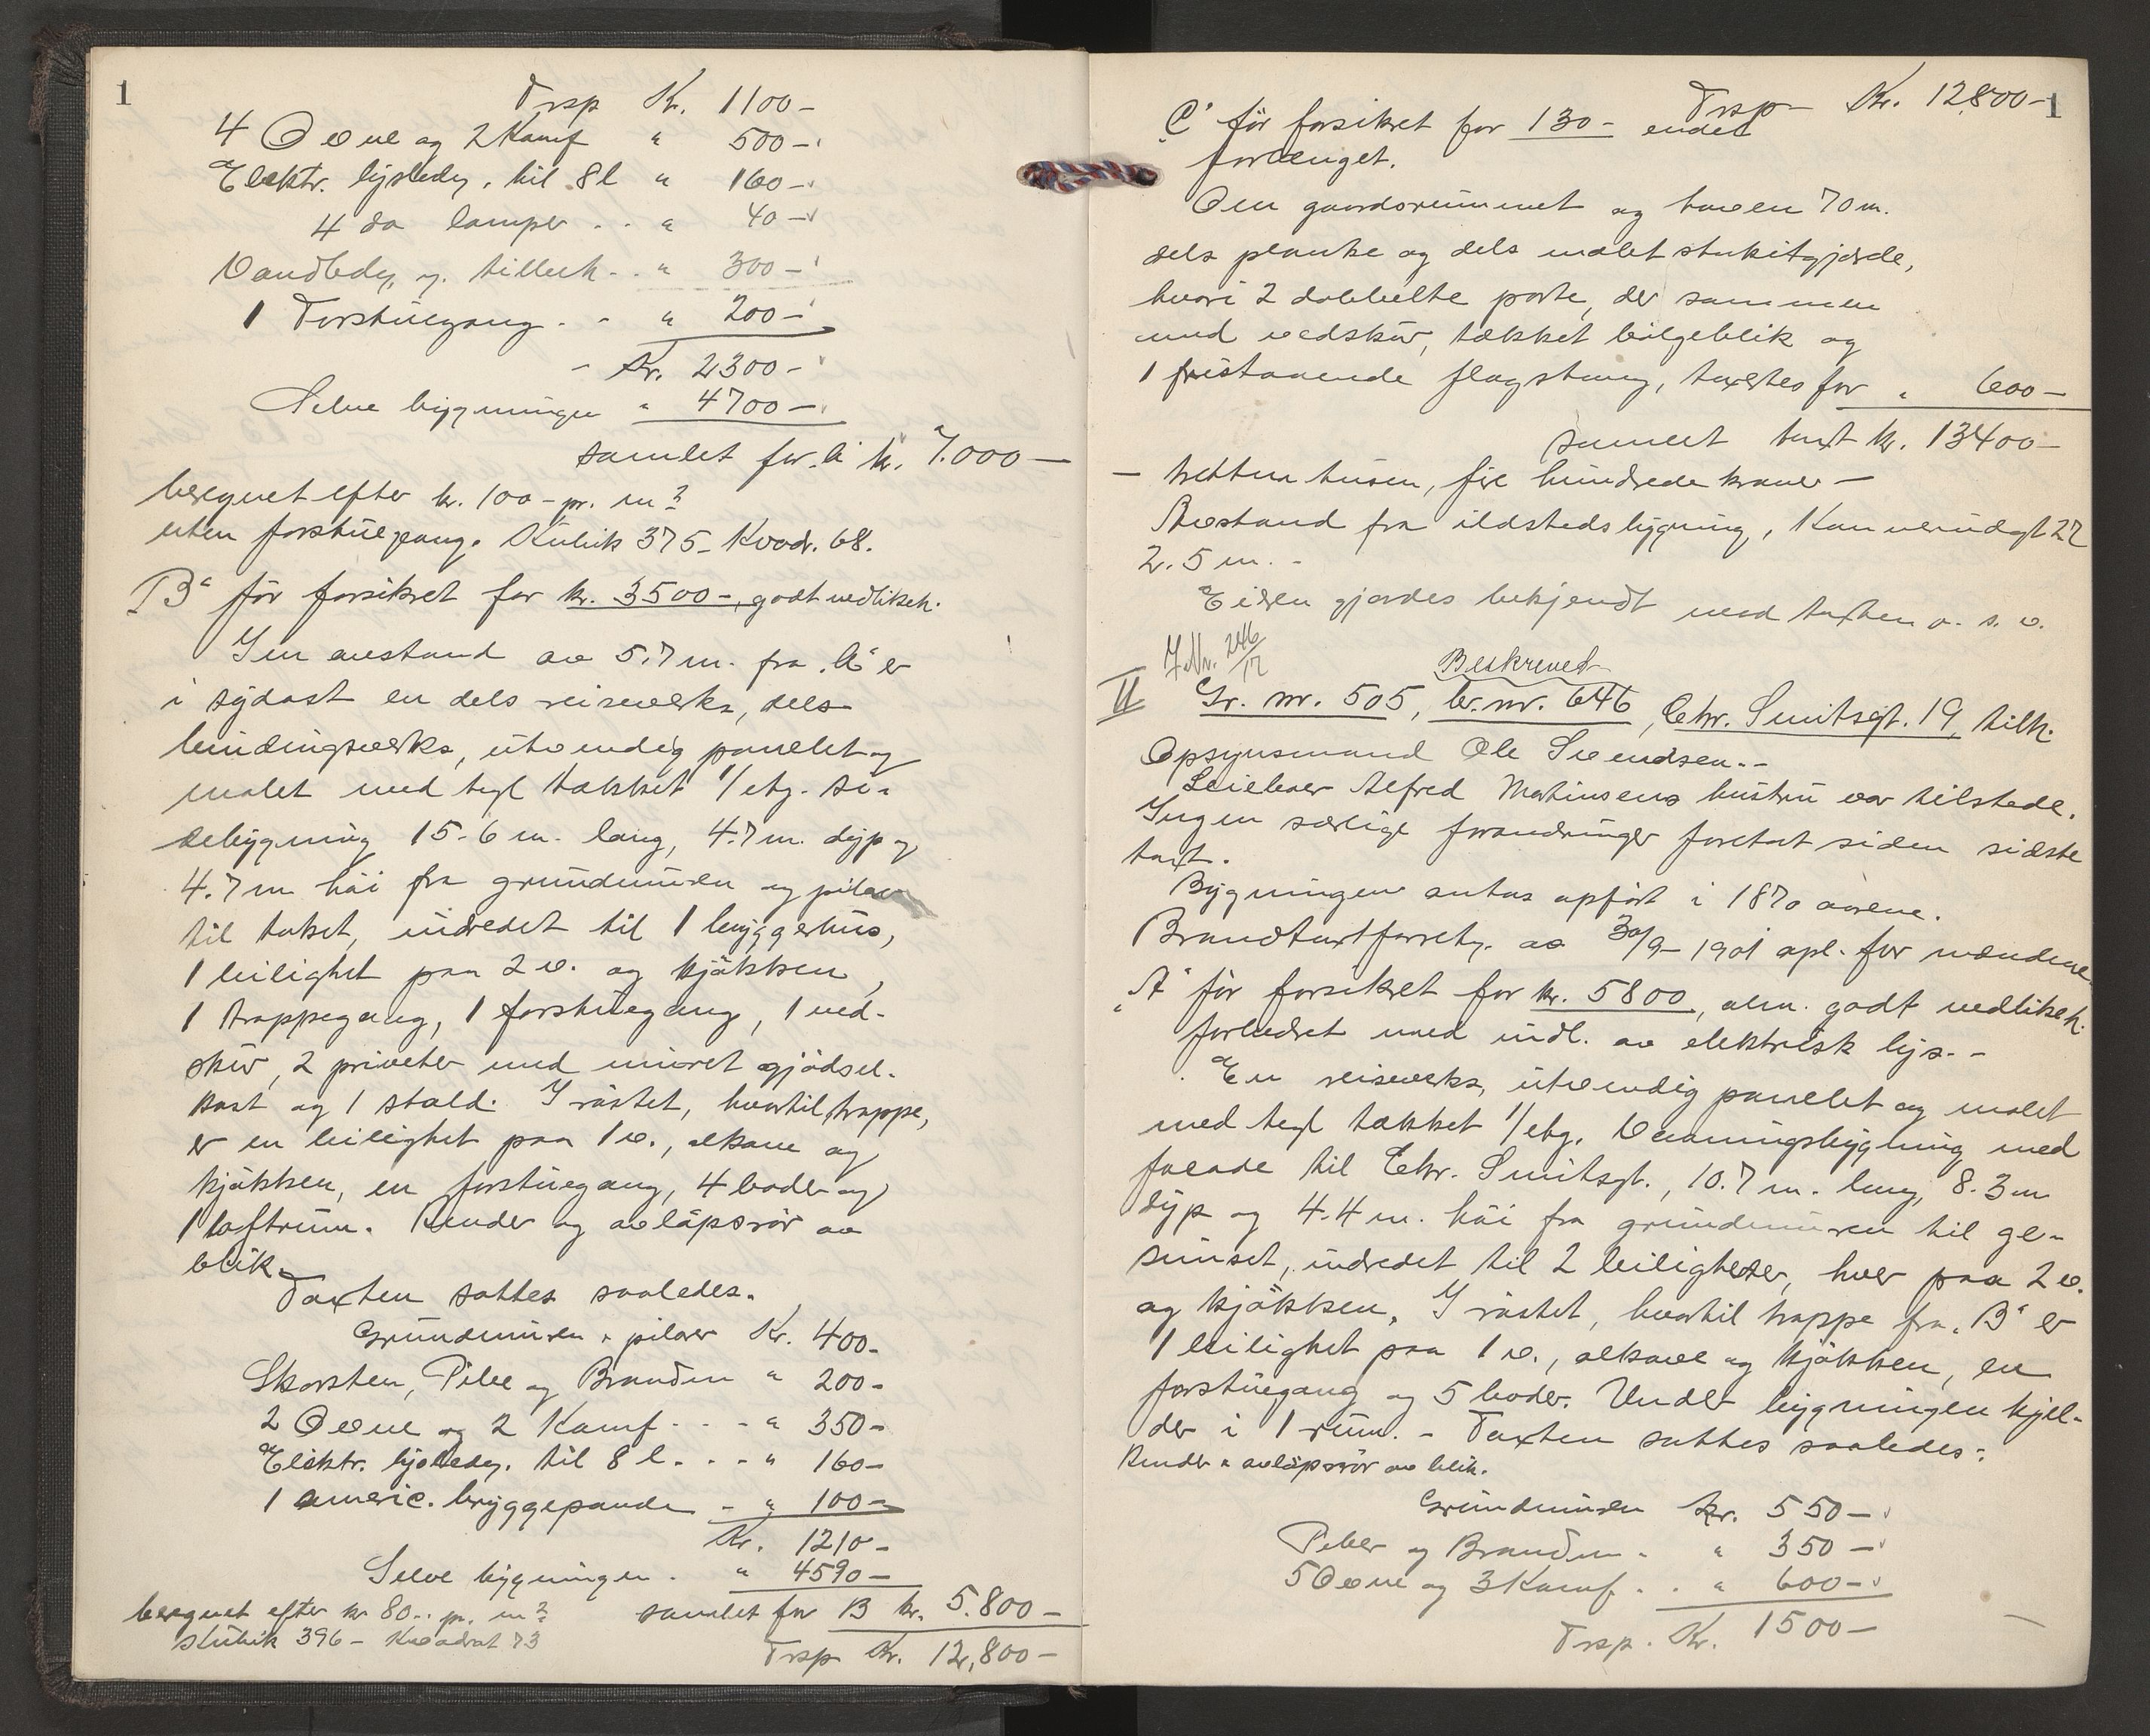 1
Trsp Kr. 1100 -
4 Ovne og 2 Komf " 500 -
Elektr. lysledn. til 8 l " 160 -
4 do lamper . . " 40 -
Vandledn. og tilbeh. . " 300 -
1 Forstuegang . . " 200 -
Kr. 2300 -
Selve bygningen " 4700 -
samlet for "A" kr. 7.000 -
beregnet efter kr. 100 - pr. m²
uten forstuegang. Kubik 375 - Kvadr. 68.
"B" før forsikret for kr. 3500 -, godt vedlikeh.
I en avstand av 5.7 m. fra "A" er
i sydøst en dels reisverks, dels
bindingsverks, utvendig panelet og
malet med tegl tækket 1/etg. si-
debygning 15.6 m. lang, 4.7 m. dyp og
4.7 m høi fra grundmuren og pilar
til taket, indredet til 1 bryggerhus,
1 leilighet paa 2 v. og kjøkken,
1 trappegang, 1 forstuegang, 1 ved-
skur, 2 priveter med muret gjødsel-
kast og 1 stald. I røstet, hvortil trappe,
er en leilighet paa 1 v., alkove og
kjøkken, en forstuegang, 4 boder og
1 loftrum. Render og avløpsrør av
blik.
Taxten sattes saaledes.
Grundmuren & pilarer Kr. 400 -
Skorsten, Piber og Brandm " 200 -
2 Ovne og 2 Komf . . - " 350 -
Elektr. lysledn. til 8 l . . - " 160 -
1 americ. bryggepande - " 100 -
Kr. 1210 -
Selve bygningen . " 4590 -
beregnet efter kr 80 .. pr. m² samlet for B kr. 5.800 -
Kubik 396 - Kvadrat 73
Trsp Kr. 12,800 -
Trsp - Kr. 12,800 - 1
"C" før forsikret for 130 -
Om gaardsrummet og haven 70 m.
dels planke og dels malet stakitgjærde,
hvori 2 dobbelte porte, der sammen
med vedskur, tækket bølgeblik og
1 fristaaende flagstang, taxertes for " 600 -
samlet taxt kr. 13400 -
- tretten tusen, fire hundrede kroner -
Avstand fra ildstedsbygning,
2.5 m. -
Eieren gjordes bekjendt med taxten o. s. v.
J.Nr. 246/12
Beskrevet
II Gr. nr. 505, br. nr. 646, Chr. Smitsgt. 19, tilh.
Opsynsmand Ole Svendsen. -
Leieboer Alfred Martinsens hustru var tilstede.
Ingen særlige forandringer foretat siden sidste
taxt.
Bygningen antas opført i 1870 aarene.
Brandtaxtforretn. av 30/9 - 1901 opl. for mændene
"A" før forsikret for kr. 5800, alm. godt vedlikeh.
forbedret med indl. av elektrisk lys. -
En reisverks, utvendig panelet og malet
med tegl tækket 1/etg. Vaaningsbygning med
facade til Chr. Smitsgt., 10.7 m. lang, 8.3 m
dyp og 4.4 m. høi fra grundmuren til ge-
simset, indredet til 2 leiligheter, hver paa 2 v.
og kjøkken. I røstet, hvortil trappe fra "B" er
1 leilighet paa 1 v., alkove og kjøkken, en
forstuegang og 5 boder. Under bygningen kjel-
der i 1 rum. - Taxten sattes saaledes:
Render & avløpsrør av blik.
Grundmuren kr. 550 -
Piber og Brandm . " 350 -
5 Ovne og 3 Komf . . " 600 -
Trsp . Kr. 1500 -